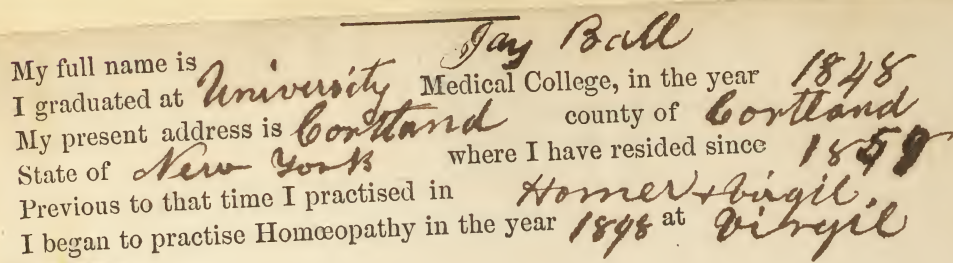 My full name is Jay Ball
I graduated at University Medical College, in the year 1848
My present address is Cortland county of Cortland
State of New York where I have resided since
Previous to that time I practised in Homer & Virgil.
I began to practise Homœopathy in the year 1848 at Virgil